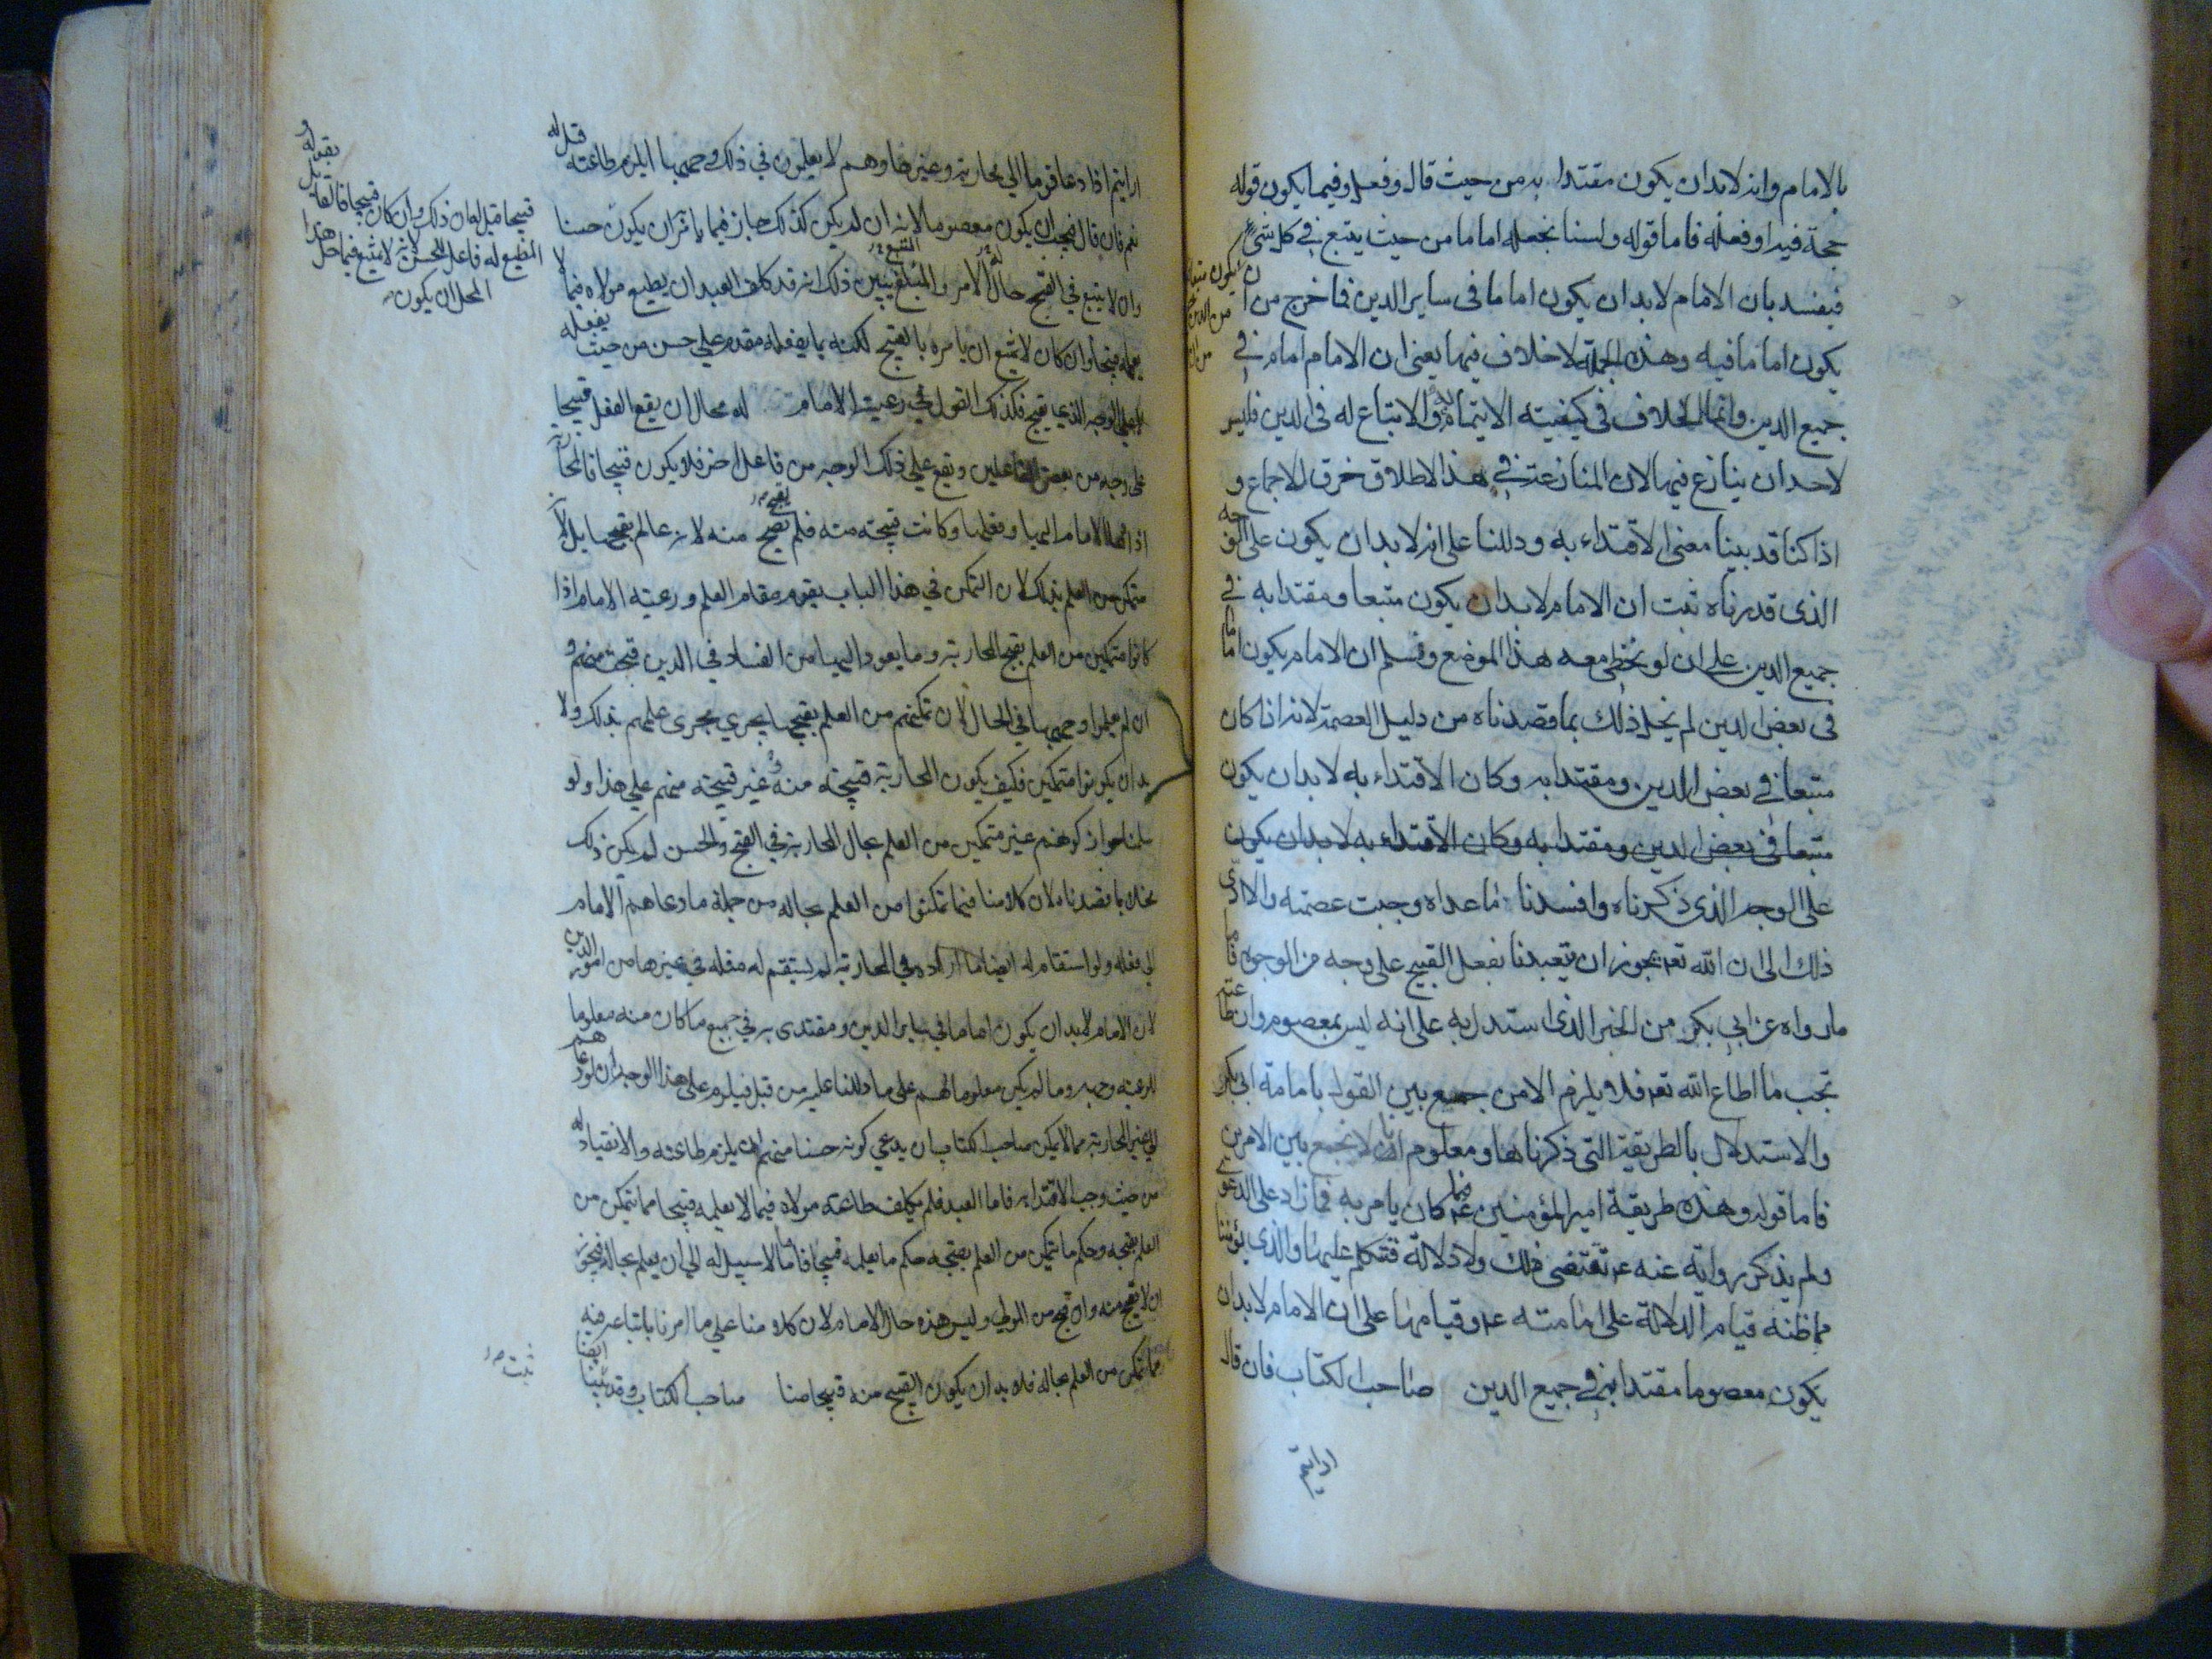 بالامام وانه لابد ان يكون مقتدا به من حيث قال وفعل وفيما يكون قوله
حجة فيه او فعله فاما قوله ولسنا نجعله اماما من حيث يتبع في كل شيء
فيفسد بان الامام لابد ان يكون اماما في ساير الدين فما خرج من ان
يكون اماما فيه وهذه الجملة لا خلاف فيها يعني ان الامام امام في
جميع الدين وانما الخلاف في كيفيته الايتمام والاتباع له في الدين فليس
لاحد ان ينازع فيها لان المنازعة في هذا الاطلاق خرق الاجماع و
اذا كنا قد بينا معنى الاقتداء به ودللنا على انه لابد ان يكون على الوجه
الذي قدرناه ثبت ان الامام لابد ان يكون متبعا ومقتدا به في
جميع الدين على ان لو تخطى معه هذا الموضع وتسلم ان الامام يكون اماما
في بعض الدين لم يخل ذلك بما قصدناه من دليل العصمة لانه اذا كان
متبعا في بعض الدين ومقتدا به وكان الاقتداء به لابد ان يكون
متبعا في بعض الدين ومقتدا به وكان الاقتداء به لابد ان يكون
على الوجه الذي ذكرناه وافسدنا ما عداه وجبت عصمته والا ادى
ذلك الى ان الله تعه يجوز ان يتعبدنا بفعل القبيح على وجه من الوجوه فاما
ما رواه عن ابي بكر من الخبر الذي استدل به على انه ليس بمعصوم وان طاعته
تجب ما اطاع الله تعه فلا يلزم الا من جمع بين القول بامامة ابي بكر
والاستدلال بالطريقة التي ذكرناها ومعلوم انا لا نجمع بين الامرين
فاما قوله وهذه طريقة امير المؤمنين عم فيما كان يامر به فما زاد على الدعوى
ولم يذكر رواية عنه عم تقتضي ذلك ولا دلالة فنتكلم عليها والذي يؤمننا
مما ظنه قيام الدلالة على امامته عم وقيامها على ان الامام لابد ان
يكون معصوما مقتدا به في جميع الدين صاحب الكتاب فان قال
ارايتم
ارايتم اذا دعا قوما الى محاربة وغيرها وهم لا يعلمون في ذلك وجهها ايلزم طاعته قيل له
نعم فان قال فيجب ان يكون معصوما لانه ان لم يكن كذلك جاز فيما يامر ان يكون حسنا
وان لا يتبع في القبح حال الامر والمتبع يبين ذلك انه قد كلف العبد ان يطيع مولاه فيما لا
يعلمه قبيحا وان كان لا يمتنع ان يامره بالقبيح لكنه بما يفعله مقدم على حسن من حيث يفعله
لا على الوجه الذي يقبح فكذلك القول في رعية الامام له محال ان يقع الفعل قبيحا
على وجه من بعض الفاعلين ويقع على ذلك الوجه من فاعل اخر فلا يكون قبيحا فالمحاربة
اذا دعا الامام اليها وفعلها وكانت قبيحة منه فلم تقبح منه لانه عالم بقبحها بل لانه
متمكن من العلم بذلك لان التمكن في هذا الباب يقوم مقام العلم ورعية الامام اذا
كانوا متمكنين من العلم بقبح المحاربة وما يعود اليها من الفساد في الدين قبحت منهم و
ان لم يعلموا وجهها في الحال لان تمكنهم من العلم بقبحها يجري مجرى علمهم بذلك ولا
بد ان يكونوا متمكنين فكيف يكون المحاربة قبيحة منه وغير قبيحة منهم على هذا ولو
سلمنا جواز كونهم غير متمكنين من العلم بحال المحاربة في القبح والحسن لم يكن ذلك
مخلا بما قصدناه لان كلامنا فيما تمكنوا من العلم بحاله من جملة ما دعاهم الامام
الى فعله ولو استقام له ايضا ما اراده في المحاربة لم يستقم له مثله في غيرها من امور الدين
لان الامام لابد ان يكون اماما في ساير الدين ومقتدى به في جميع ما كان منه معلوما
للرعية وجهه وما لم يكن معلوما لهم على ما دللنا عليه من قبل فيلزم على هذا الوجه ان لو دعاهم
الى غير المحاربة مما لا يمكن صاحب الكتاب ان يدعي كونه حسنا منهم ان يلزم طاعته والانقياد له
من حيث وجب الاقتداء به فاما العبد فلم يكلف طاعة مولاه فيما لا يعلمه قبيحا مما يتمكن من
العلم بقبحه وحكم ما يتمكن من العلم بقبحه حكم ما يعلمه قبيحا فاما ما لا سبيل له الى ان يعلم بحاله فيجوز
ان لا يقبح منه وان قبح من المولى وليس هذه حال الامام لان كلامنا على ما امرنا باتباعه فيه
مما نتمكن من العلم بحاله فلابد ان يكون القبيح منه قبيحا منا صاحب الكتاب وقد بينا ايضا
قبيحا قيل له ان ذلك وان كان قبيحا فالقابل بقوله و
المطيع له فاعل للحسن لانه لا يمتنع فيما حل هذا
المحل ان يكون